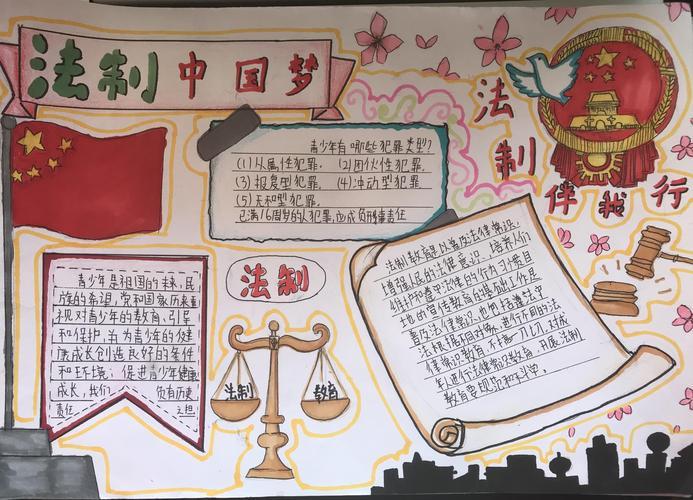 法制中国梦
法制
伴我行
青少年有哪些犯罪类型?
(1)从属性犯罪. (2)团伙性犯罪.
(3)报复型犯罪. (4)冲动型犯罪
(5)无知型犯罪.
已满16周岁的人犯罪,应成负刑事责任
青少年是祖国的未来,民
族的希望,党和国家历来重
视对青少年的教育、引导
和保护,并为青少年的健
康成长创造良好的条件
和环境;促进青少年健康
成长,我们 负有历史
责任
法制
法制 教育
法制教育是以普及法律常识,
增强人民的法律意识,培养人们
维护和遵守法律的行为习惯目
地的宣传教育的基础工作是
普及法律常识,也把活遵法守
法
律常识教育,
年
教育要规范和科学。